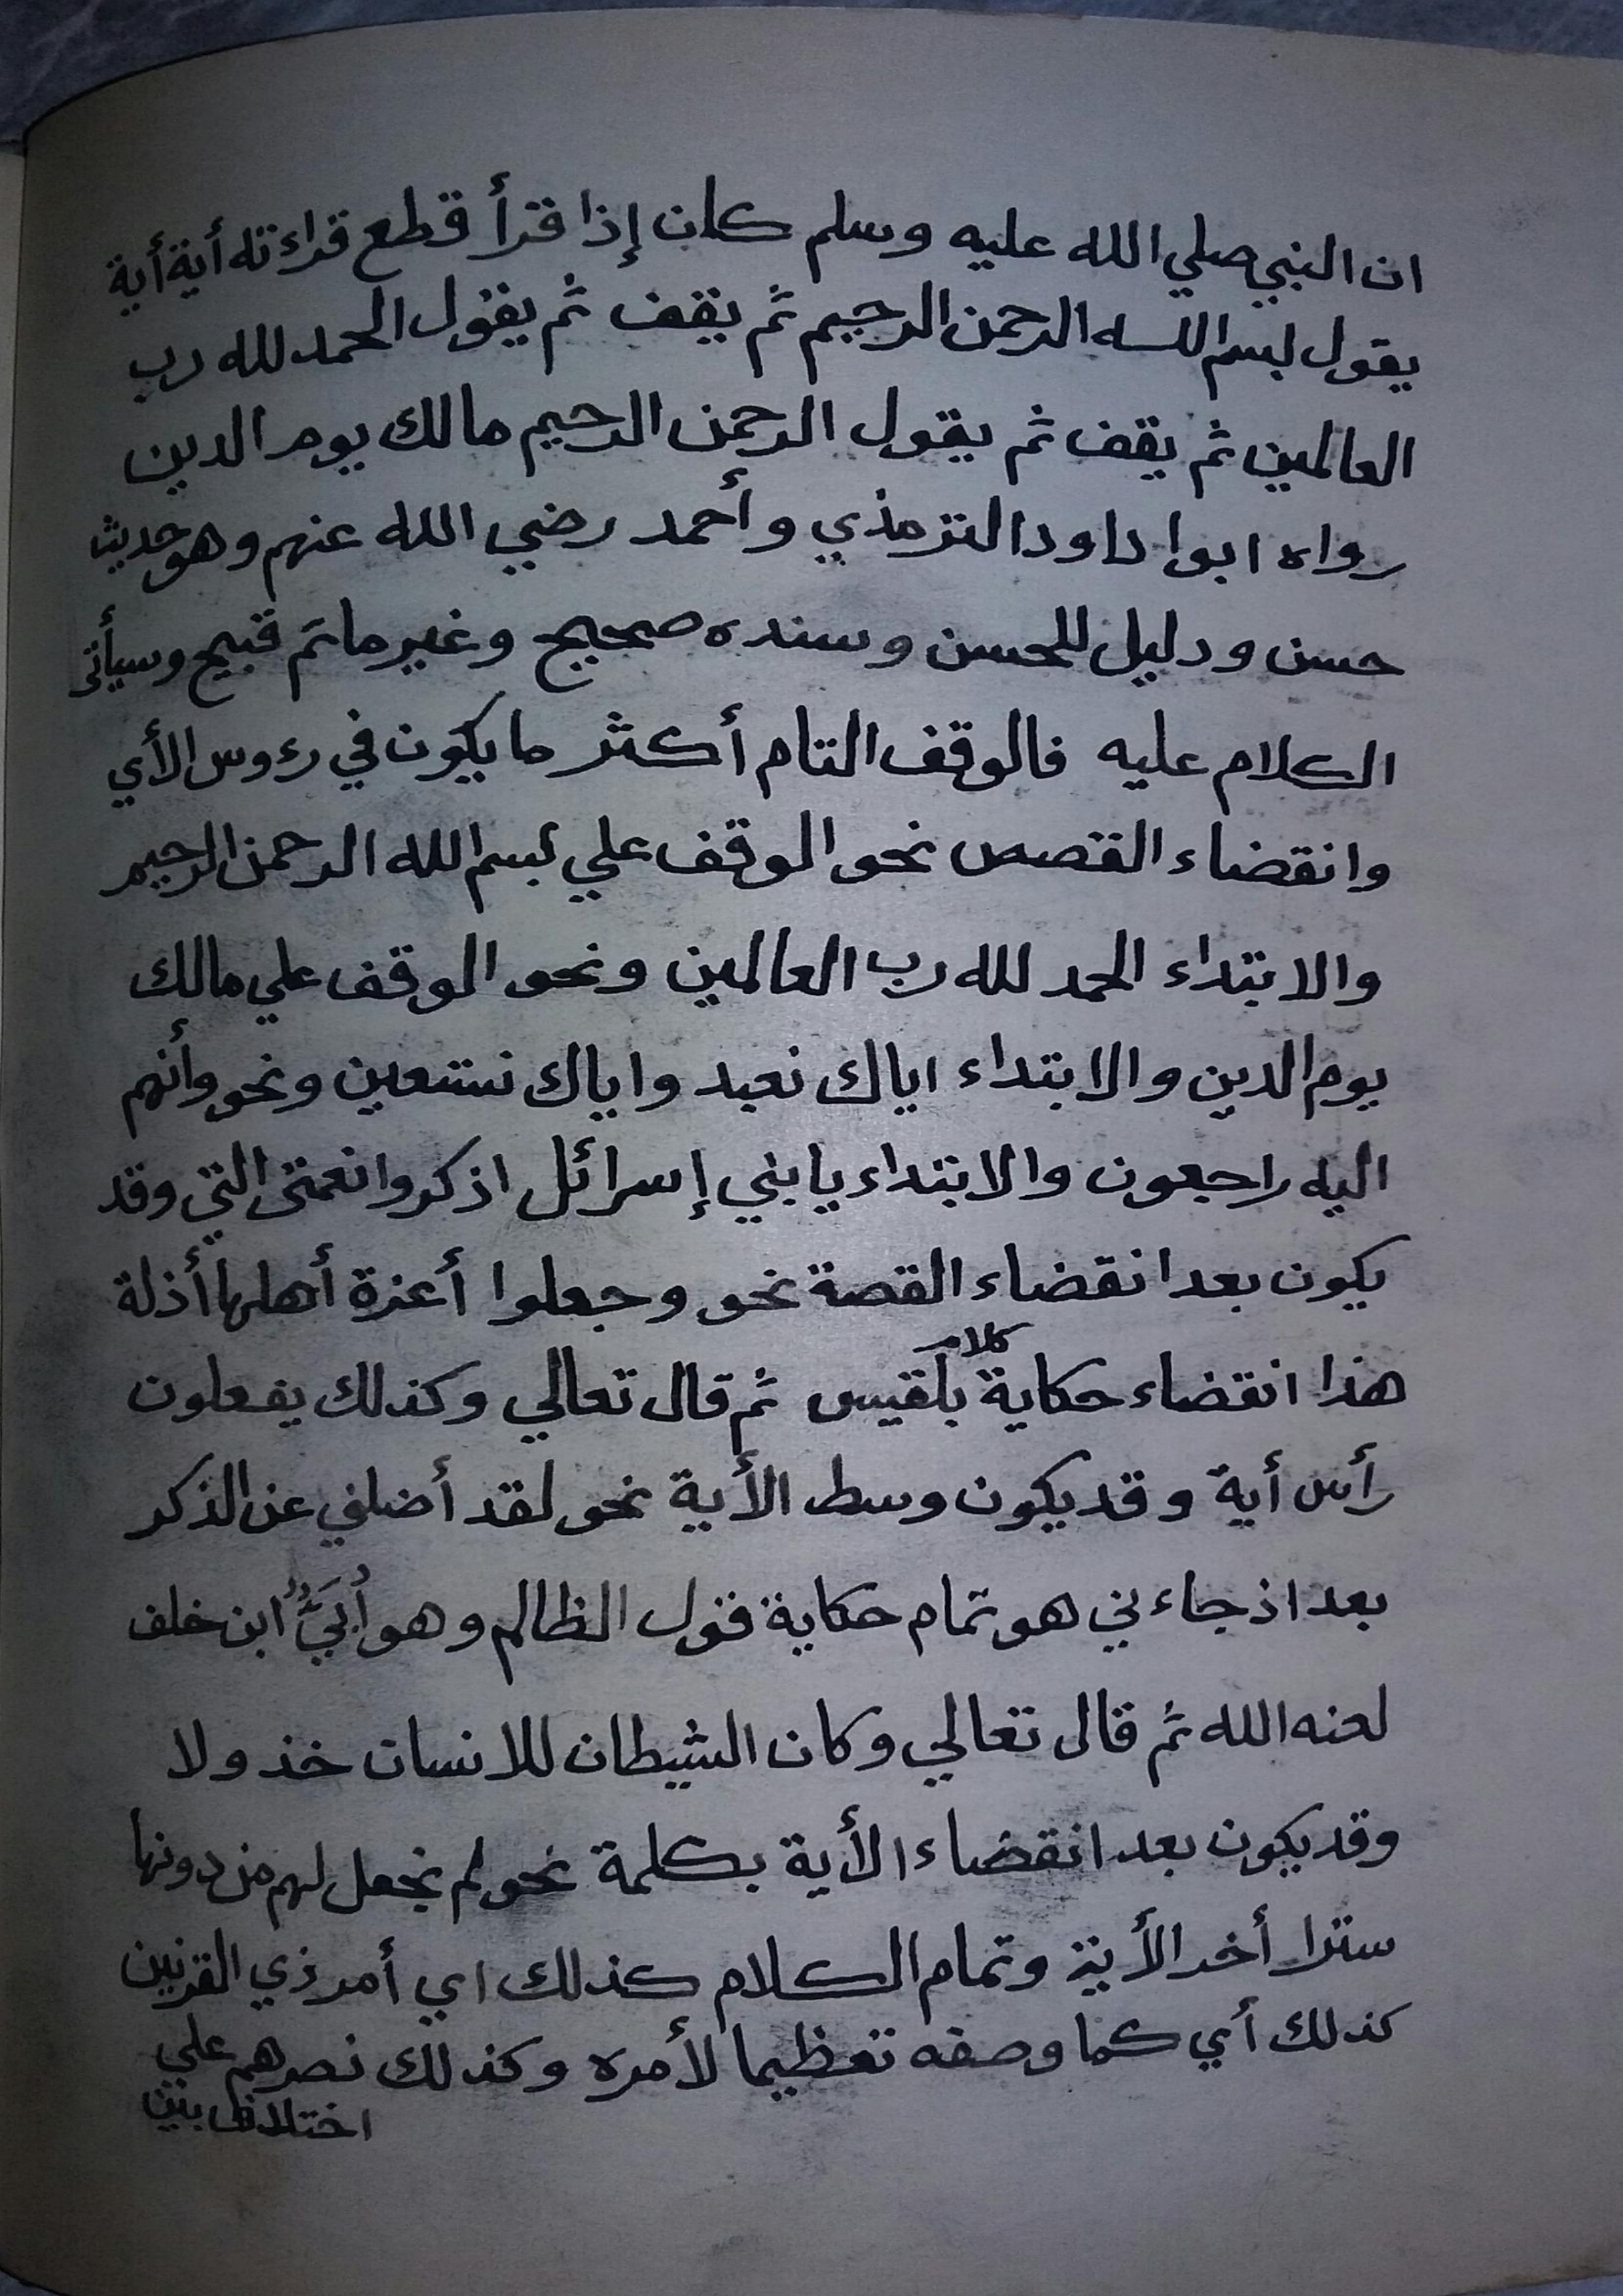 ان النبي صلي الله عليه وسلم كان إذا قرأ قطع قراءته أية أية
يقول بسم الله الرحمن الرحيم ثم يقف ثم يقول الحمد لله رب
العالمين ثم يقف ثم يقول الرحمن الرحيم مالك يوم الدين
رواه ابوا داود الترمذي وأحمد رضي الله عنهم وهو حديث
حسن ودليل للحسن وسنده صحيح وغير ما تم قبيح وسيأتى
الكلام عليه فالوقف التام أكثر ما يكون في رءوس الأي
وانقضاء القصص نحو الوقف علي بسم الله الرحمن الرحيم
والابتداء الحمد لله رب العالمين ونحو الوقف علي مالك
يوم الدين والابتداء اياك نعبد واياك نستعين ونحو وأنهم
اليه راجعون والابتداء يا بني إسرائل اذكروا نعمتى التي وقد
يكون بعد انقضاء القصة نحو وجعلوا أعزة أهلها أذلة
هذا انقضاء حكاية كلام بلقيس ثم قال تعالي وكذلك يفعلون
رأس أية وقد يكون وسط الأية نحو لقد أضلني عن الذكر
بعد اذ جاءني هو تمام حكاية قول الظالم وهو أُبَيٌّ ابن خلف
لعنه الله ثم قال تعالي وكان الشيطان للانسان خذولا
وقد يكون بعد انقضاء الأية بكلمة نحو لم نجعل لهم من دونها
سترا أخر الأية وتمام الكلام كذلك اي أمر ذي القرنين
كذلك أي كما وصفه تعظيما لأمره وكذلك نصرهم علي
اختلاف بين